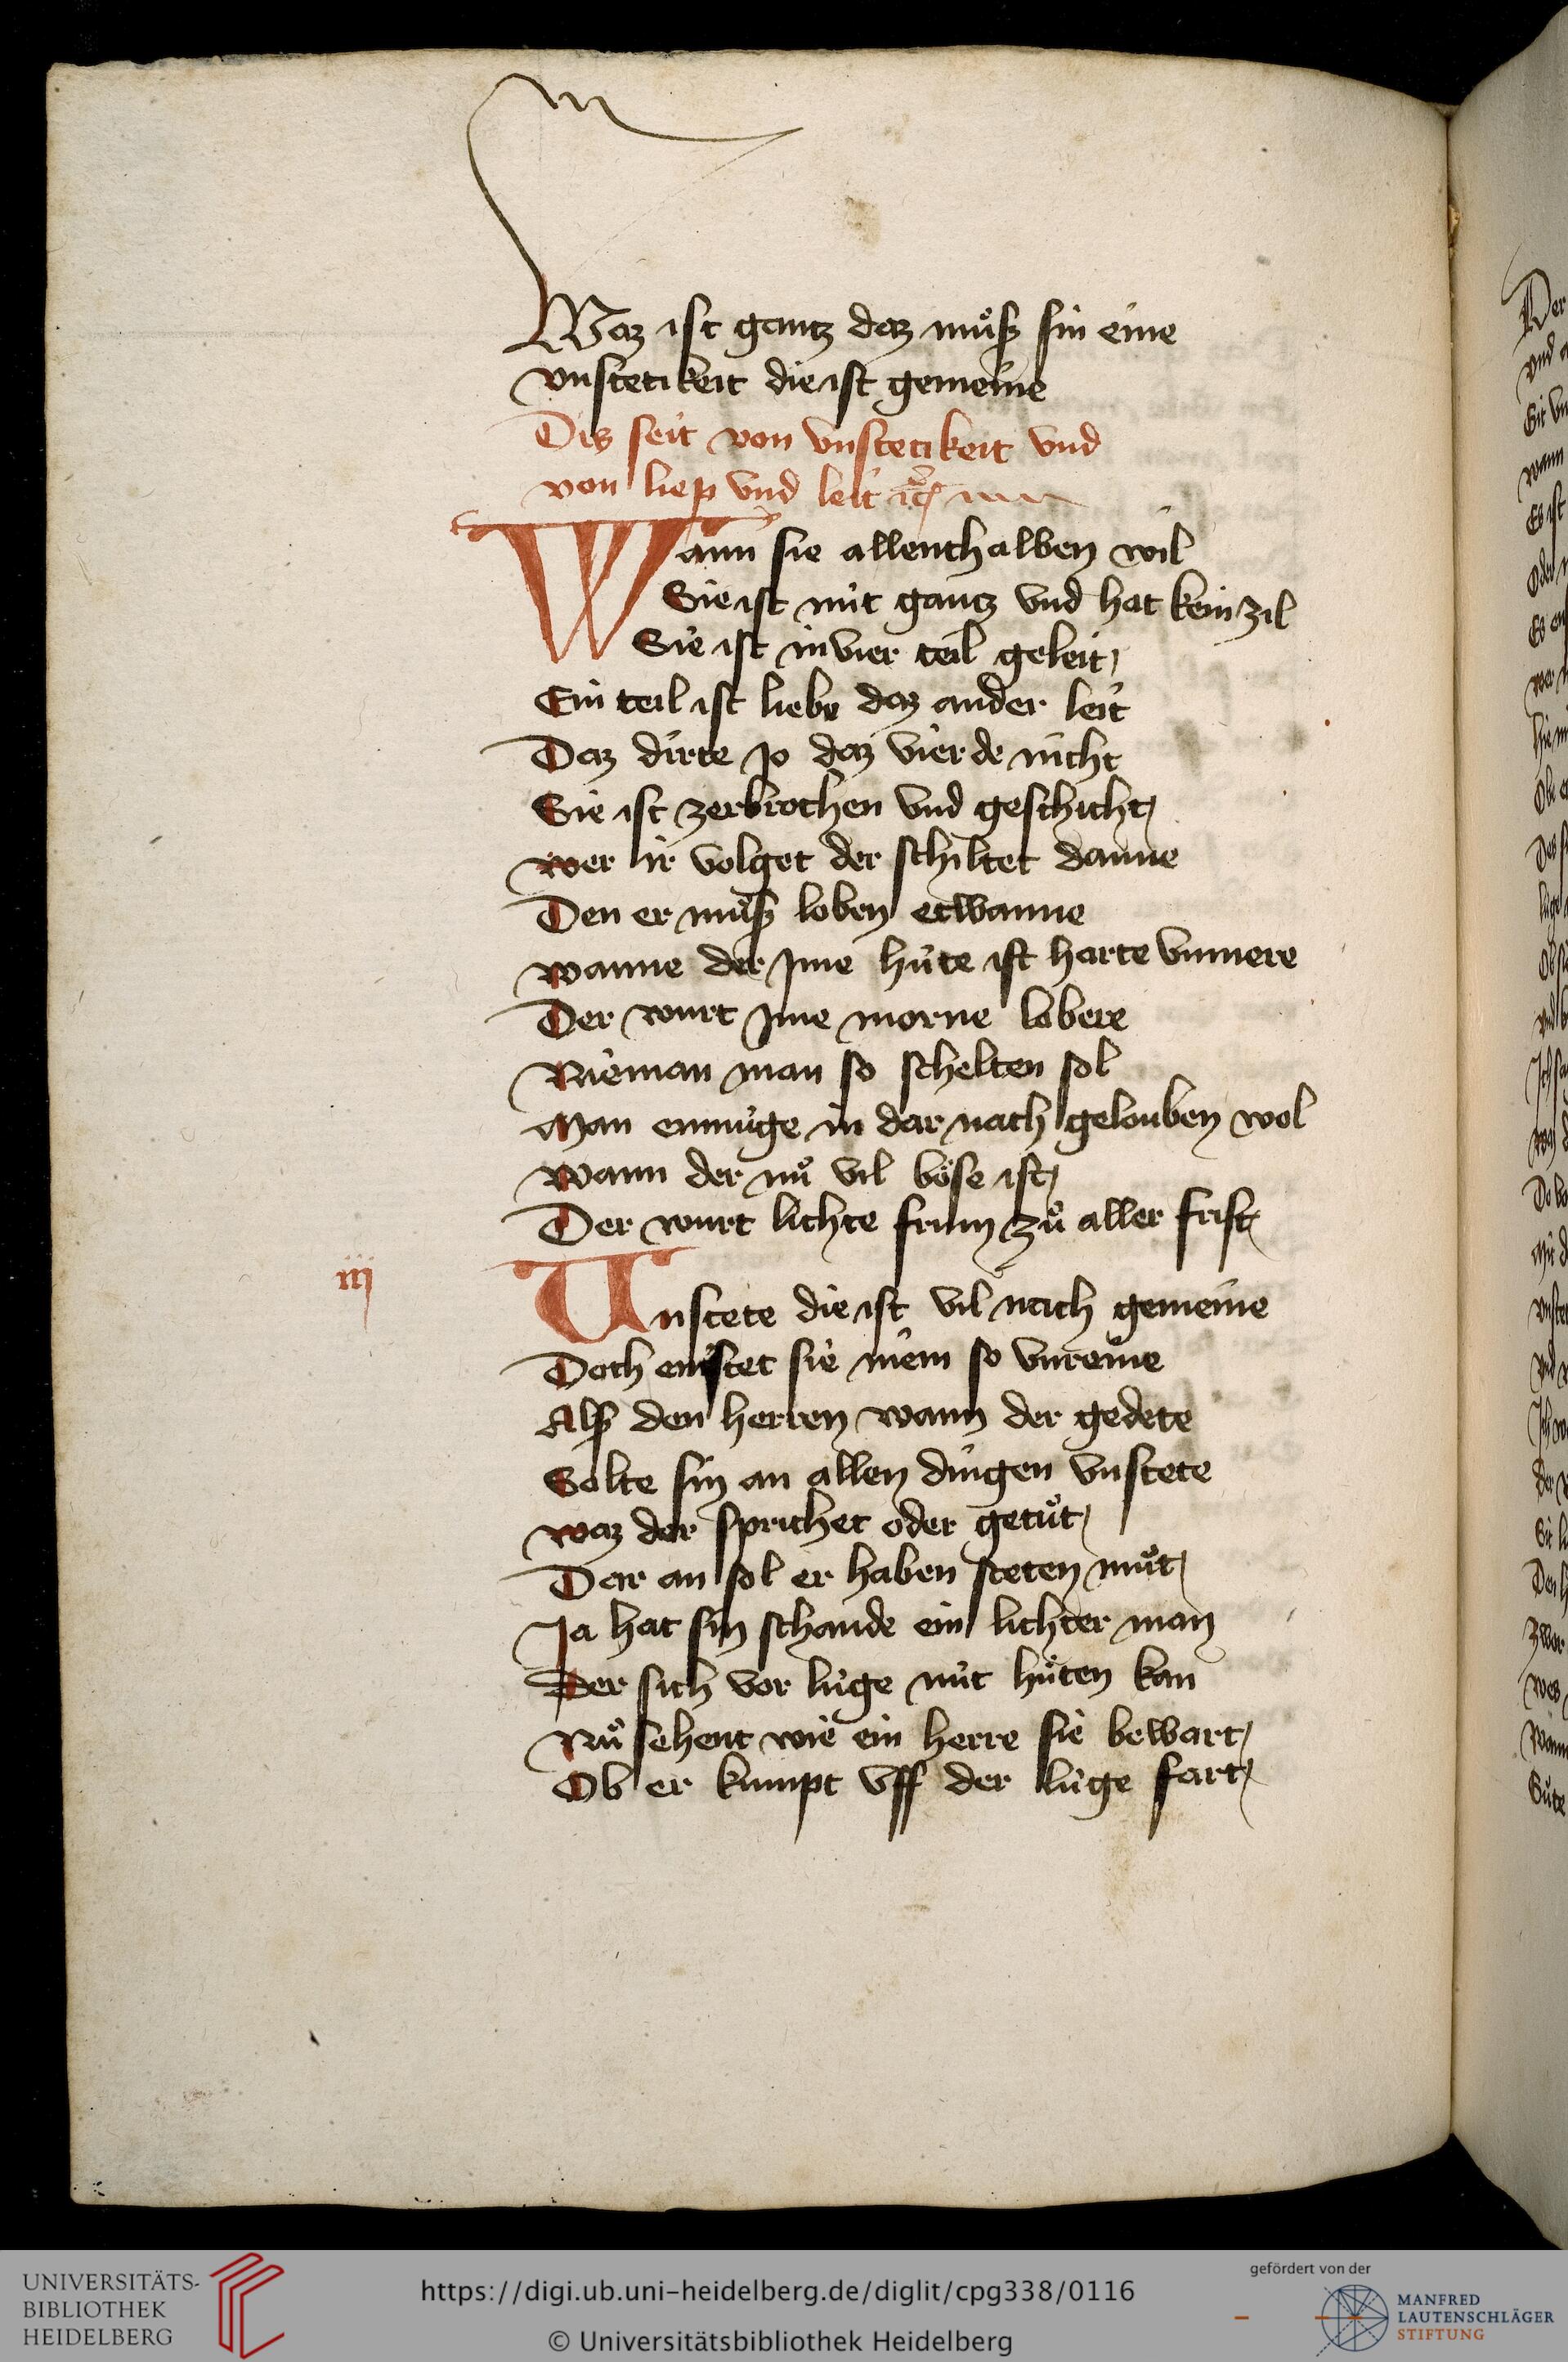 Waz ist gantz daz muͦß sin eine
vnstetikeit die ist gemeine
Dis seit von vnstetikeit vnd
von liep vnd leit
Wann sie allenthalben wil
Sie ist nuͥt gantz vnd hat kein zil
Sie ist in vier teil geleit
Ein teil ist liebe daz ander leit
Daz dirte jo daz vierde nicht
Sie ist zerbrochen vnd geschicht
wer ir volget der schiltet danne
Den er muͦß loben etwanne
wanne der jme huͥte ist harte vnmere
Der wurt jme morne lobere
Nieman man so schelten sol
Man enmuͥge in dar nach gelouben wol
wann der nuͦ vil boͤse ist
Der wurt lichte frum zuͦ aller frist
iij
Unstete die ist vil nach gemeine
Doch enistet sie niem so vnreine
Alß den herren wann der gedete
Solte sin an allen dingen vnstete
waz der sprichet oder getuͦt
Dar an sol er haben steten muͦt
Ja hat sin schande ein lichter man
Der sich vor luͥge nuͥt huͤten kan
Nuͦ sehent wie ein herre sie bewart
Ob er kumpt vff der luͥge fart
UNIVERSITÄTS-
BIBLIOTHEK
HEIDELBERG
https://digi.ub.uni-heidelberg.de/diglit/cpg338/0116
© Universitätsbibliothek Heidelberg
gefördert von der
MANFRED
LAUTENSCHLÄGER
STIFTUNG